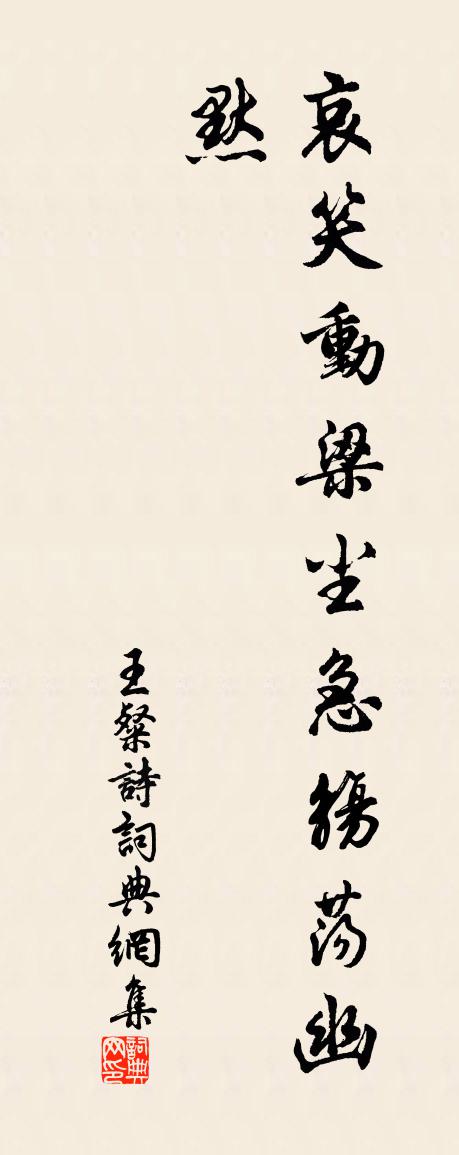 哀笑動梁尘急觴蕩幽
默
王粲詩詞典網集
詞典
网印